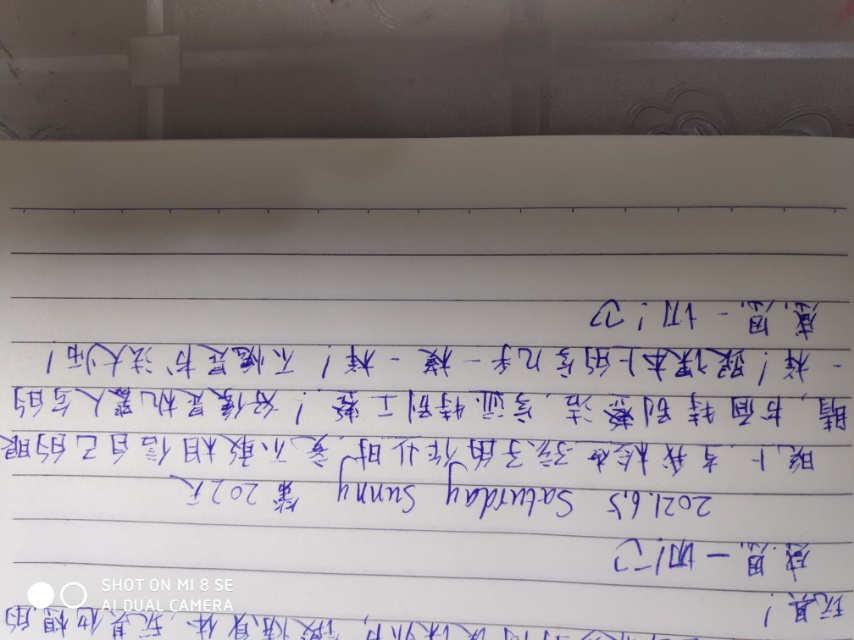 锻炼身体,玩其他想的
玩具!
感恩一切!♡
2021.6.5 Saturday Sunny 第202天
晚上,当我检查孩子的作业时,竟不敢相信自己的眼
睛,书面特别整洁,字迹特别工整!好像是机器人写的
一样!跟课本上的字几乎一模一样!不愧是书法大师!
感恩一切!♡
SHOT ON MI 8 SE
AI DUAL CAMERA